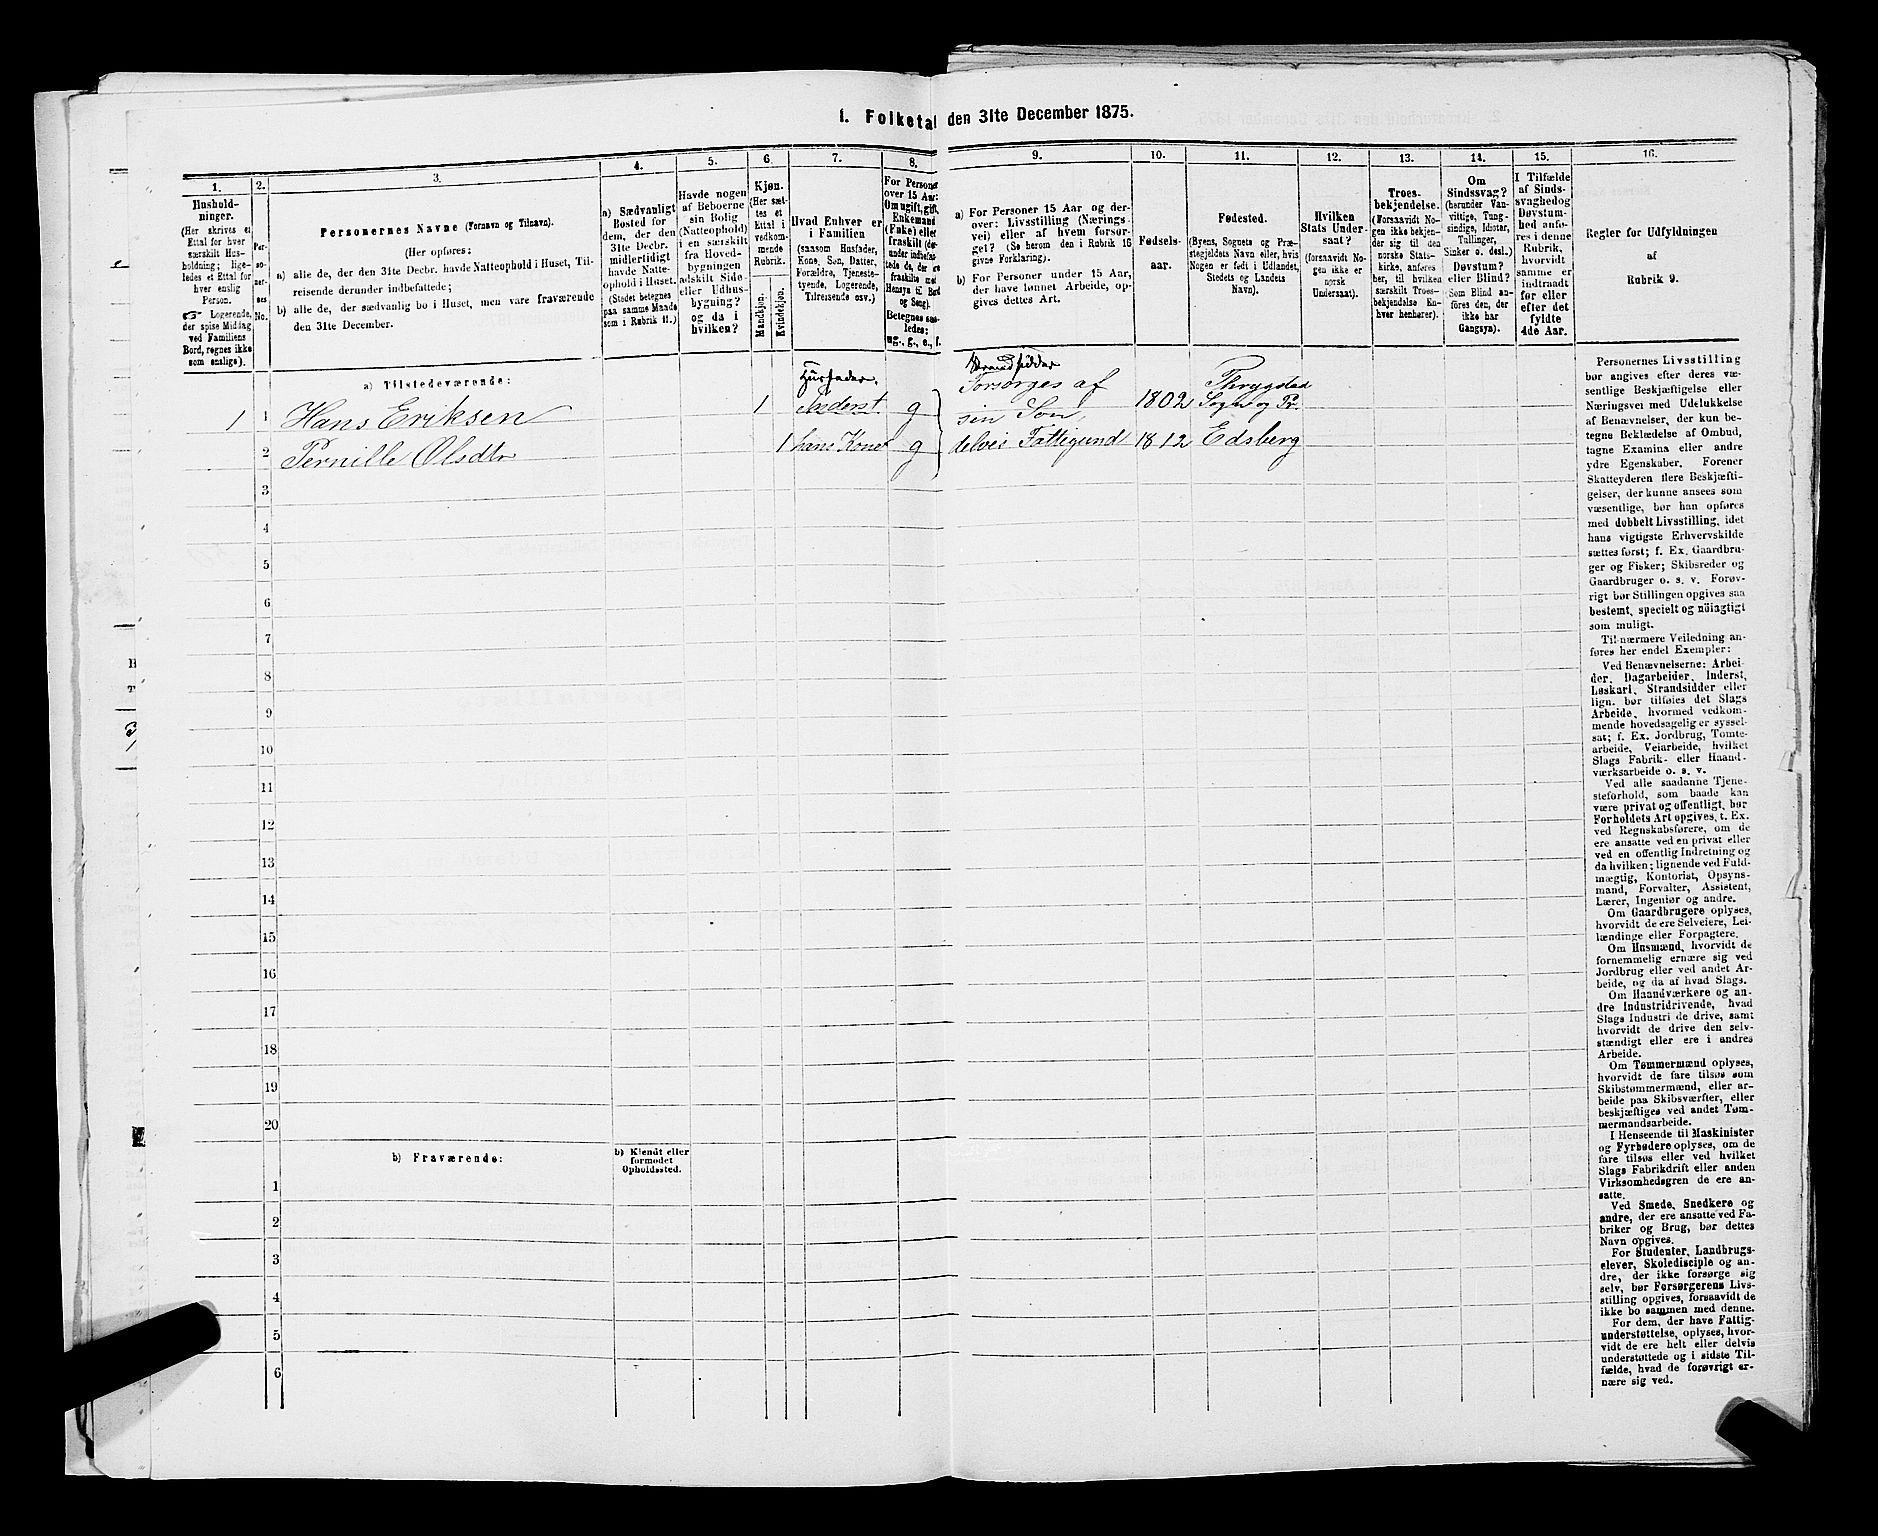 1. Folketal den 31te December 1875.
1.
Hushold-
ninger.
(Her skrives et
Ettal for hver
særskilt Hus-
holdning; lige-
ledes et Ettal for
hver enslig
Person.
☞ Logerende,
der spise Middag
ved Familiens
Bord, regnes ikke
som enslige).
2.
Per-
so-
ner-
nes
No.
3.
Personernes Navne (Fornavn og Tilnavn).
(Her opføres:
a) alle de, der den 31te Decbr. havde Natteophold i Huset, Til-
reisende derunder indbefattede;
b) alle de, der sædvanlig bo i Huset, men vare fraværende
den 31te December.
4.
a) Sædvanligt
Bosted for
dem, der den
31te Decbr.
midlertidigt
havde Natte-
ophold i Huset.
(Stedet betegnes
paa samme Maade
som i Rubrik 11.)
5.
Havde nogen
af Beboerne
sin Bolig
(Natteophold)
i en særskilt
fra Hoved-
bygningen
adskilt Side-
eller Udhus-
bygning?
og da i
hvilken?
6.
Kjøn.
(Her sæt-
tes et
Ettal i
vedkom-
mende
Rubrik.
Mandkjøn.
Kvindekjøn.
7.
Hvad Enhver er
i Familien
(saasom Husfader,
Kone, Søn, Datter,
Forældre, Tjeneste-
tyende, Logerende,
Tilreisende osv.)
8.
For Personer
over 15 Aar:
Om ugift, gift,
Enkemand
(Enke) eller
fraskilt (der-
under indbefat-
tede de, der ere
fraskilte med
Hensyn til Bord
og Seng).
Betegnes saa-
ledes:
ug., g., e., f.
9.
a) For Personer 15 Aar og der-
over: Livsstilling (Nærings-
vei) eller af hvem forsør-
get? (Se herom den i Rubrik 16
givne Forklaring).
b) For Personer under 15 Aar,
der have lønnet Arbeide, op-
gives dettes Art.
10.
Fødsels-
aar.
11.
Fødested.
(Byens, Sognets og Præ-
stegjeldets Navn eller, hvis
Nogen er født i Udlandet,
Stedets og Landets
Navn).
12.
Hvilken
Stats Under-
saat?
(forsaavidt No-
gen ikke er
norsk
Undersaat).
13.
Troes-
bekjendelse.
(Forsaavidt No-
gen ikke bekjen-
der sig til den
norske Stats-
kirke, anføres
her, til hvilken
særskilt Troes-
bekjendelse En-
hver henhører).
14.
Om
Sindssvag?
(herunder Van-
vittige, Tung-
sindige, Idiotar,
Tullinger,
Sinker o. desl.)
Døvstum?
eller Blind?
Som Blind an-
føres den, der
ikke har
Gangsyn).
15.
I Tilfælde
af Sinds-
svaghed og
Døvstum-
hed anfø-
res i denne
Rubrik,
hvorvidt
samme er
indtraadt
før eller
efter det
fyldte
4de Aar.
16.
Regler for Udfyldningen
af
Rubrik 9.
a) Tilstedeværende:
1
1 Hans Eriksen 1 Husfader. Inderst g Strandsidder Forsørges af sin Søn, 1802 Thrygstad Sogn og Pr.
2 Pernille Olsdtr 1 hans Kone g delvis Fattigund 1812 Edsberg
3
4
5
6
7
8
9
10
11
12
13
14
15
16
17
18
19
20
b) Fraværende:
b) Kjendt eller
formodet
Opholdssted.
1
2
3
4
5
6
Personernes Livsstilling
bør angives efter deres væ-
sentlige Beskjæftigelse eller
Næringsvei med Udelukkelse
af Benævnelser, der kun be-
tegne Beklædelse af Ombud,
tagne Examina eller andre
ydre Egenskaber. Forener
Skatteyderen flere Beskjæfti-
gelser, der kunne ansees som
væsentlige, bør han opføres
med dobbelt Livsstilling, idet
hans vigtigste Erhvervskilde
sættes først; f. Ex. Gaardbru-
ger og Fisker; Skibsreder og
Gaardbruger o. s. v. Forøv-
rigt bør Stillingen opgives saa
bestemt, specielt og nöiagtigt
som muligt.
Til nærmere Veiledning an-
føres her endel Exempler:
Ved Benævnelserne: Arbei-
der, Dagarbeider, Inderst,
Løskarl, Strandsidder eller
lign. bør tilføies det Slags
Arbeide, hvormed vedkom-
mende hovedsagelig er syssel-
sat; f. Ex. Jordbrug, Tomte-
arbeide, Veiarbeide, hvilket
Slags Fabrik- eller Haand-
værksarbeide o. s. v.
Ved alle saadanne Tjene-
steforhold, som baade kan
være privat og offentligt, bør
Forholdets Art opgives, t. Ex.
ved Regnskabsførere, om de
ere ansatte ved en privat eller
ved en offentlig Indretning og
da hvilken; lignende ved Fuld-
mægtig, Kontorist, Opsyns-
mand, Forvalter, Assistent,
Lærer, Ingeniør og andre.
Om Gaardbrugere oplyses,
hvorvidt de ere Selveiere, Lei-
lændinge eller Forpagtere.
Om Husmænd, hvorvidt de
fornemmelig ernære sig ved
Jordbrug eller ved andet Ar-
beide, og da af hvad Slags.
Om Haandværkere og an-
dre Industridrivende, hvad
Slags Industri de drive, samt
hvorvidt de drive den selv-
stændigt eller ere i andres
Arbeide.
Om Tømmermænd oplyses,
hvorvidt de fare tilsøs som
Skibstømmermænd, eller ar-
beide paa Skibsværfter, eller
beskjæftiges ved andet Tøm-
mermandsarbeide.
I Henseende til Maskinister
og Fyrbødere oplyses, om de
fare tilsøs eller ved hvilket
Slags Fabrikdrift eller anden
Virksomhedsgren de ere an-
satte.
Ved Smede, Snedkere og
andre, der ere ansatte ved Fa-
briker og Brug, bør dettes
Navn opgives.
For Studenter, Landbrugs-
elever, Skoledisciple og an-
dre, der ikke forsørge sig
selv, bør Forsørgerens Livs-
stilling opgives, forsaavidt de
ikke bo sammen med denne.
For dem, der have Fattig-
understøttelse, oplyses, hvor-
vidt de ere helt eller delvis
understøttede og i sidste Til-
fælde, hvad de forøvrigt er-
nære sig ved.